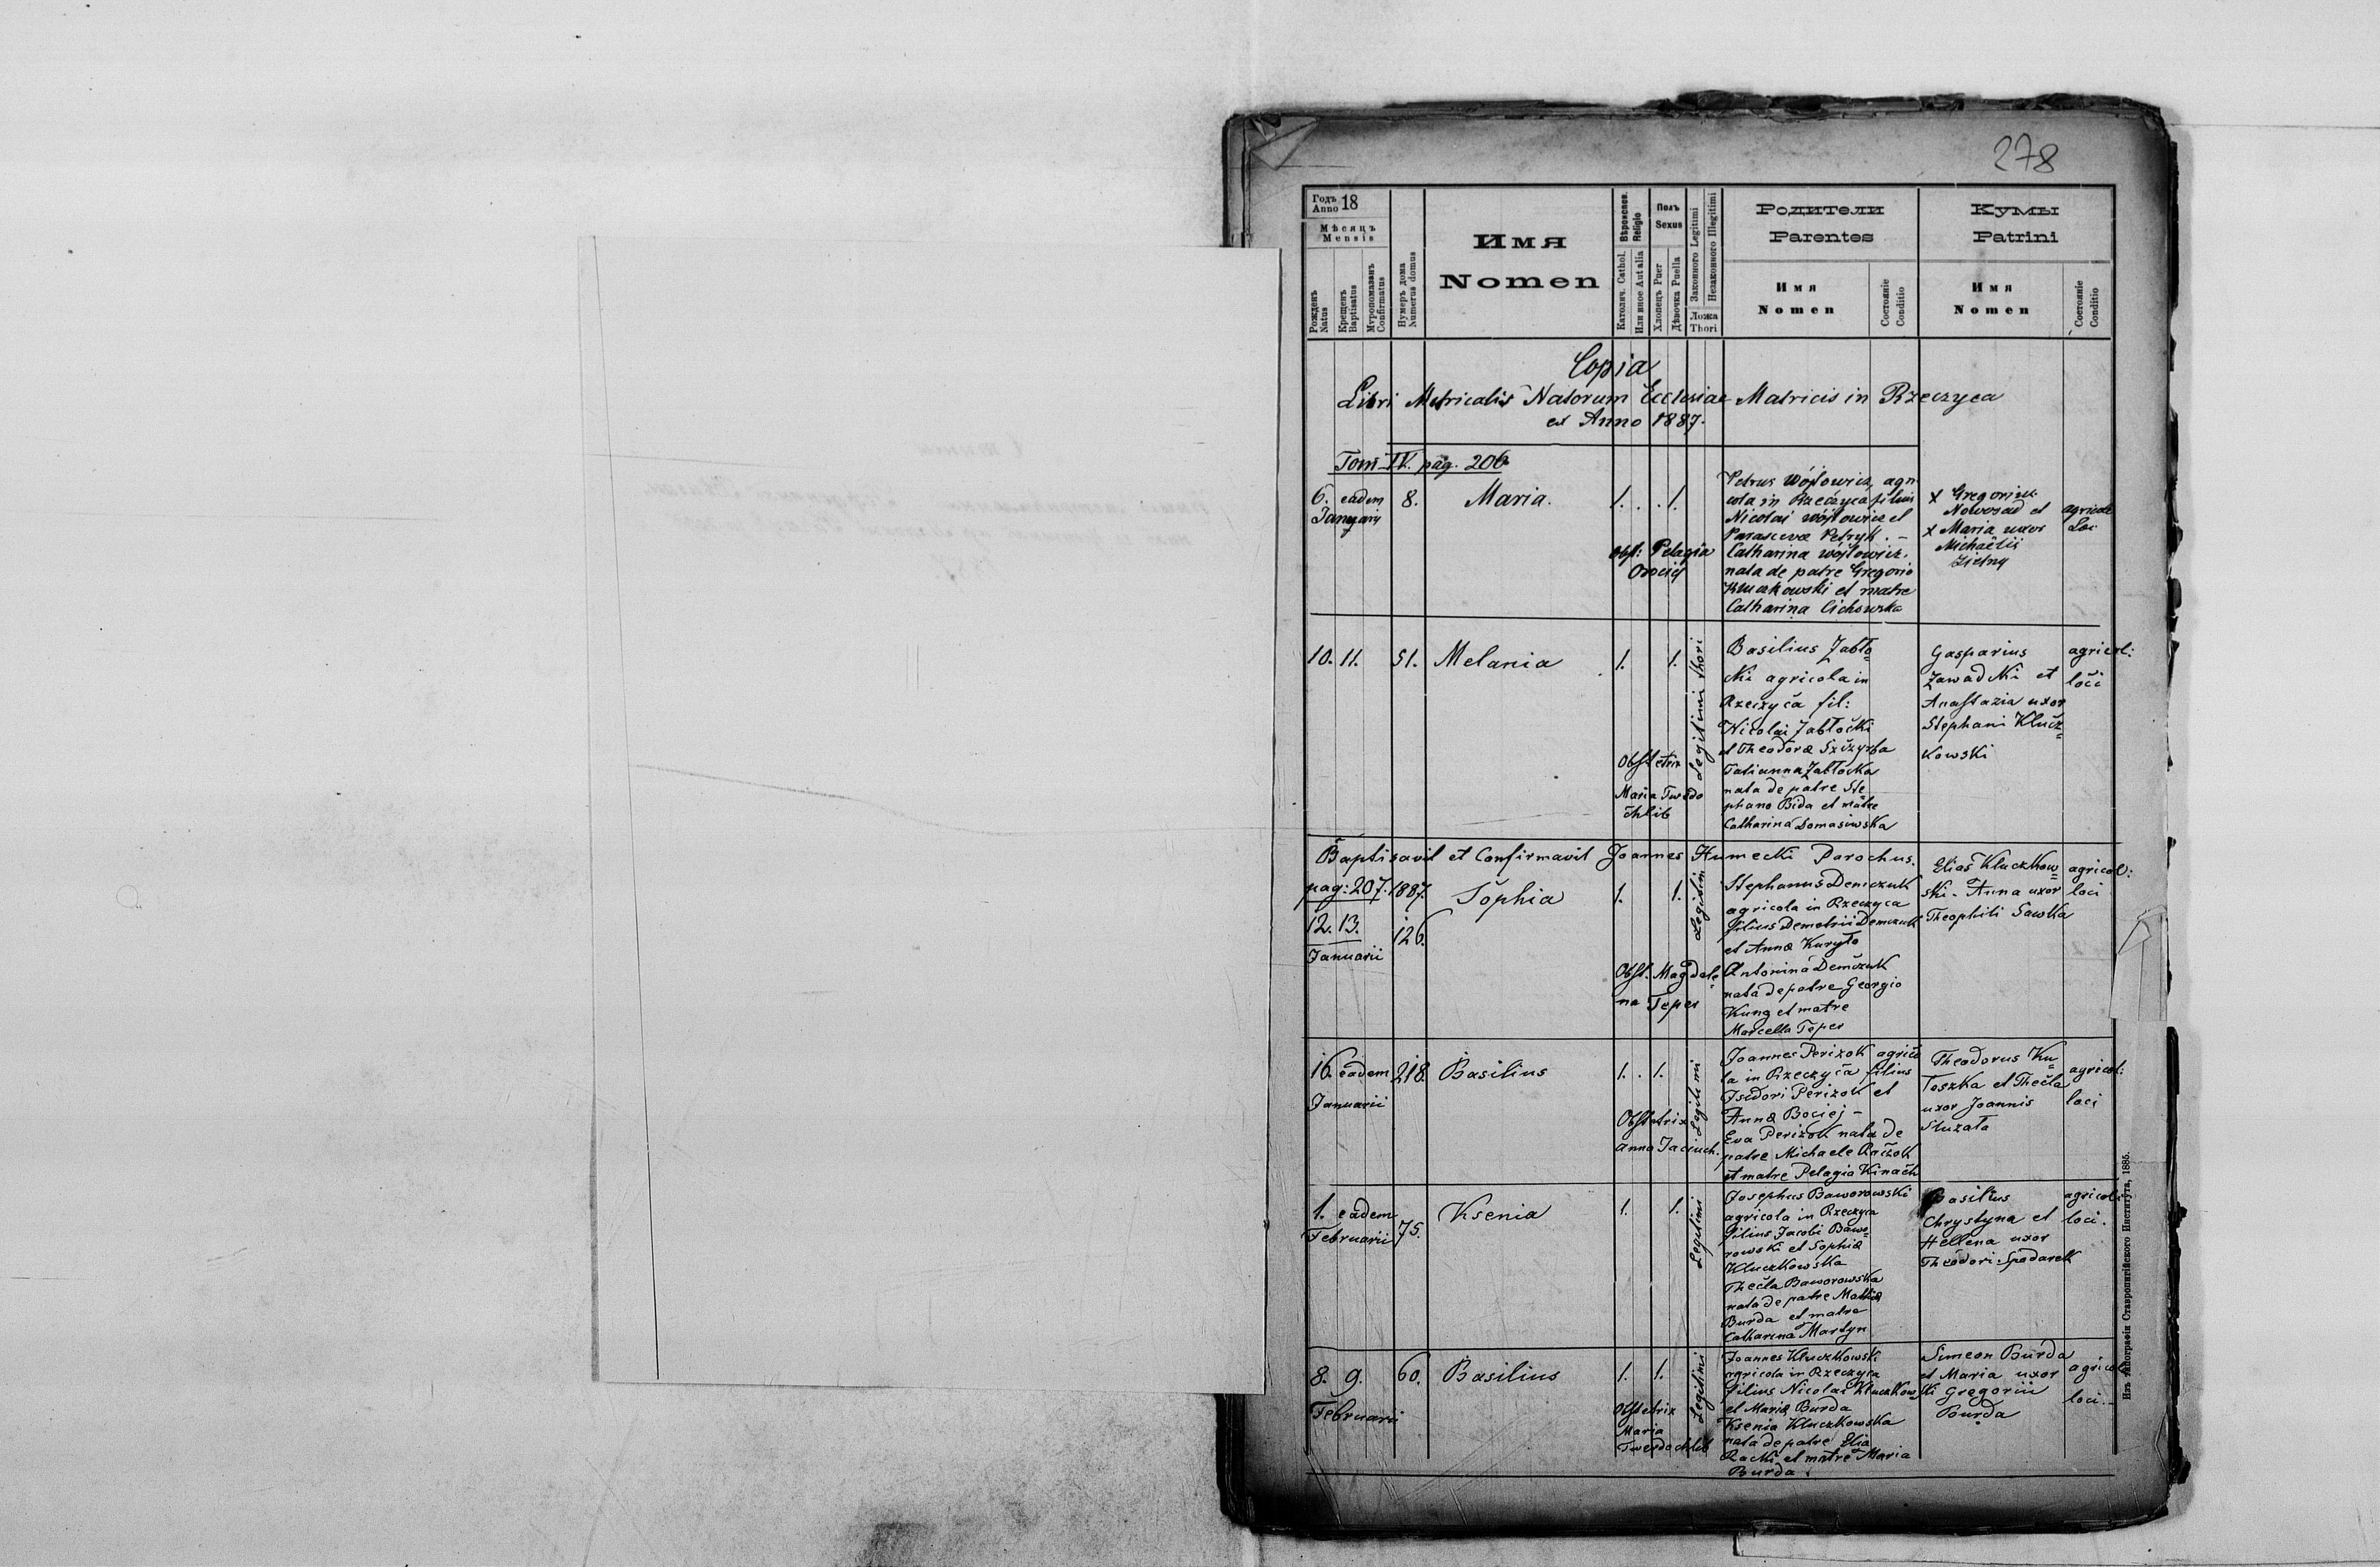 278
Годъ Anno 18
Мѣсяцъ
Mensis
Рожденъ Natus
Крещенъ Baptisatus
Мѵропомазанъ Confirmatus
Нумеръ дома Numerus domus
Имя
Nomen
Вѣроисповѣд. Religio
Католич. Cathol.
Или иное Aut alia
Полъ
Sexus
Хлопецъ Puer
Дѣвочка Puella
Законного Legitimi
Незаконного Illegitimi
Ложа
Thori
Родители
Parentes
Имя
Nomen
Состояніе Conditio
Кумы
Patrini
Имя
Nomen
Состояніе Conditio
Copia
Libri Metricalis Natorum Ecclesiae Matricis in Rzeczyca
ex Anno 1887.
Tom IV. pag. 206
6. eadem 8. Maria. 1. . . 1.
Januarij
Obst: Pelagia
Petrus Wójtowicz, agri
cola in Rzeczyca filius
Nicolai Wójtowicz et
Parascevæ Petryk. –
Catharina Wójtowicz.
nata de patre Gregorio
Kluczkowski et matre
Catharina Cichowska
x Gregorius
Nowosad et
x Maria uxor
Michaëlis
agricolæ
Loc
10. 11. 51. Melania 1. 1.
Legitimi thori
Obstetrix
Maria Twerdo
chlib
Basilius Jabło
cki agricola in
Rzeczyca fil:
Nicolai Jabłocki
et Theodoræ Szczyrba
Tatianna Jabłocka
nata de patre Ste
phano Bida et matre
Catharina Domasiwska
Gasparius
Zawadzki et
Anastazia uxor
Stephani Klucz
kowski
agricol:
loci
Baptisavit et Confirmavit Joannes Humecki Parochus.
pag: 207. 1887. Sophia 1. 1.
12. 13. 126.
Januarii
Legitimi
Obst. Magdale
na Teper
Stephanus Demczuk
agricola in Rzeczyca
filius Demetrii Demczuk
et Annæ Kuryło
Antonina Demczuk
nata de patre Georgio
Kung et matre
Marcella Teper
Elias Kluczkow
ski. Anna uxor
Theophili Sawka
agricol:
loci
16. eadem 218. Basilius 1. . 1.
Januarii
Legitimi
Obstetrix
Anna Jaciuch.
Joannes Perizok agrico
la in Rzeczyca filius
Isidori Perizok et
Annæ Bociej –
Eva Perizok nata de
patre Michaele Raczok
et matre Pelagia Kinach
Theodorus Ku
łeszka et Thecla
uxor Joannis
Słuzała
agricol:
loci
1. eadem 75. Ksenia 1. 1.
Februarii
Legitimi
Josephus Baworowski
agricola in Rzeczyca
filius Jacobi Bawo
rowski et Sophiæ
Kluczkowska
Thecla Baworowska
nata de patre Mathia
Burda et matre
Catharina Martyn
Basilius
Chrystyna et
Hellena uxor
Theodori Spodaryk
agricol:
loci.
8. 9. 60. Basilius 1. 1.
Februarii
Legitimi
Obstetrix
Maria
Twerdochlib
Joannes Kluczkowski
agricola in Rzeczyca
filius Nicolai Kluczkowski
et Mariæ Burda
Ksenia Kluczkowska
nata de patre Elia
Racki et matre Maria
Burda.
Simeon Burda
et Maria uxor
Gregorii
Burda
agricol
loci. –
Изъ Типографіи Ставропигійского Института, 1885.